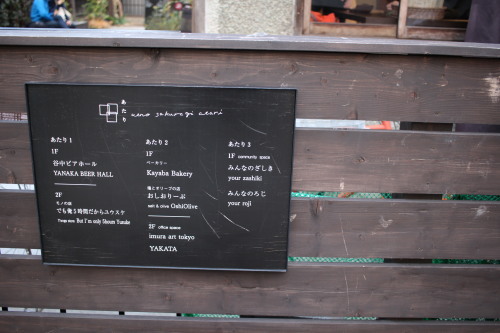 あたり
ueno sakuragi atari
あたり 1
1F
谷中ビアホール
YANAKA BEER HALL
2F
モノの店
でも俺５時間だからユウスケ
But I'm only
あたり 2
1F
ベーカリー
Kayaba Bakery
塩とオリーブの店
おしおりーぶ
salt & olive OshiOlive
2F office space
imura art tokyo
YAKATA
あたり 3
1F community space
みんなのざしき
your zashiki
みんなのろじ
your roji